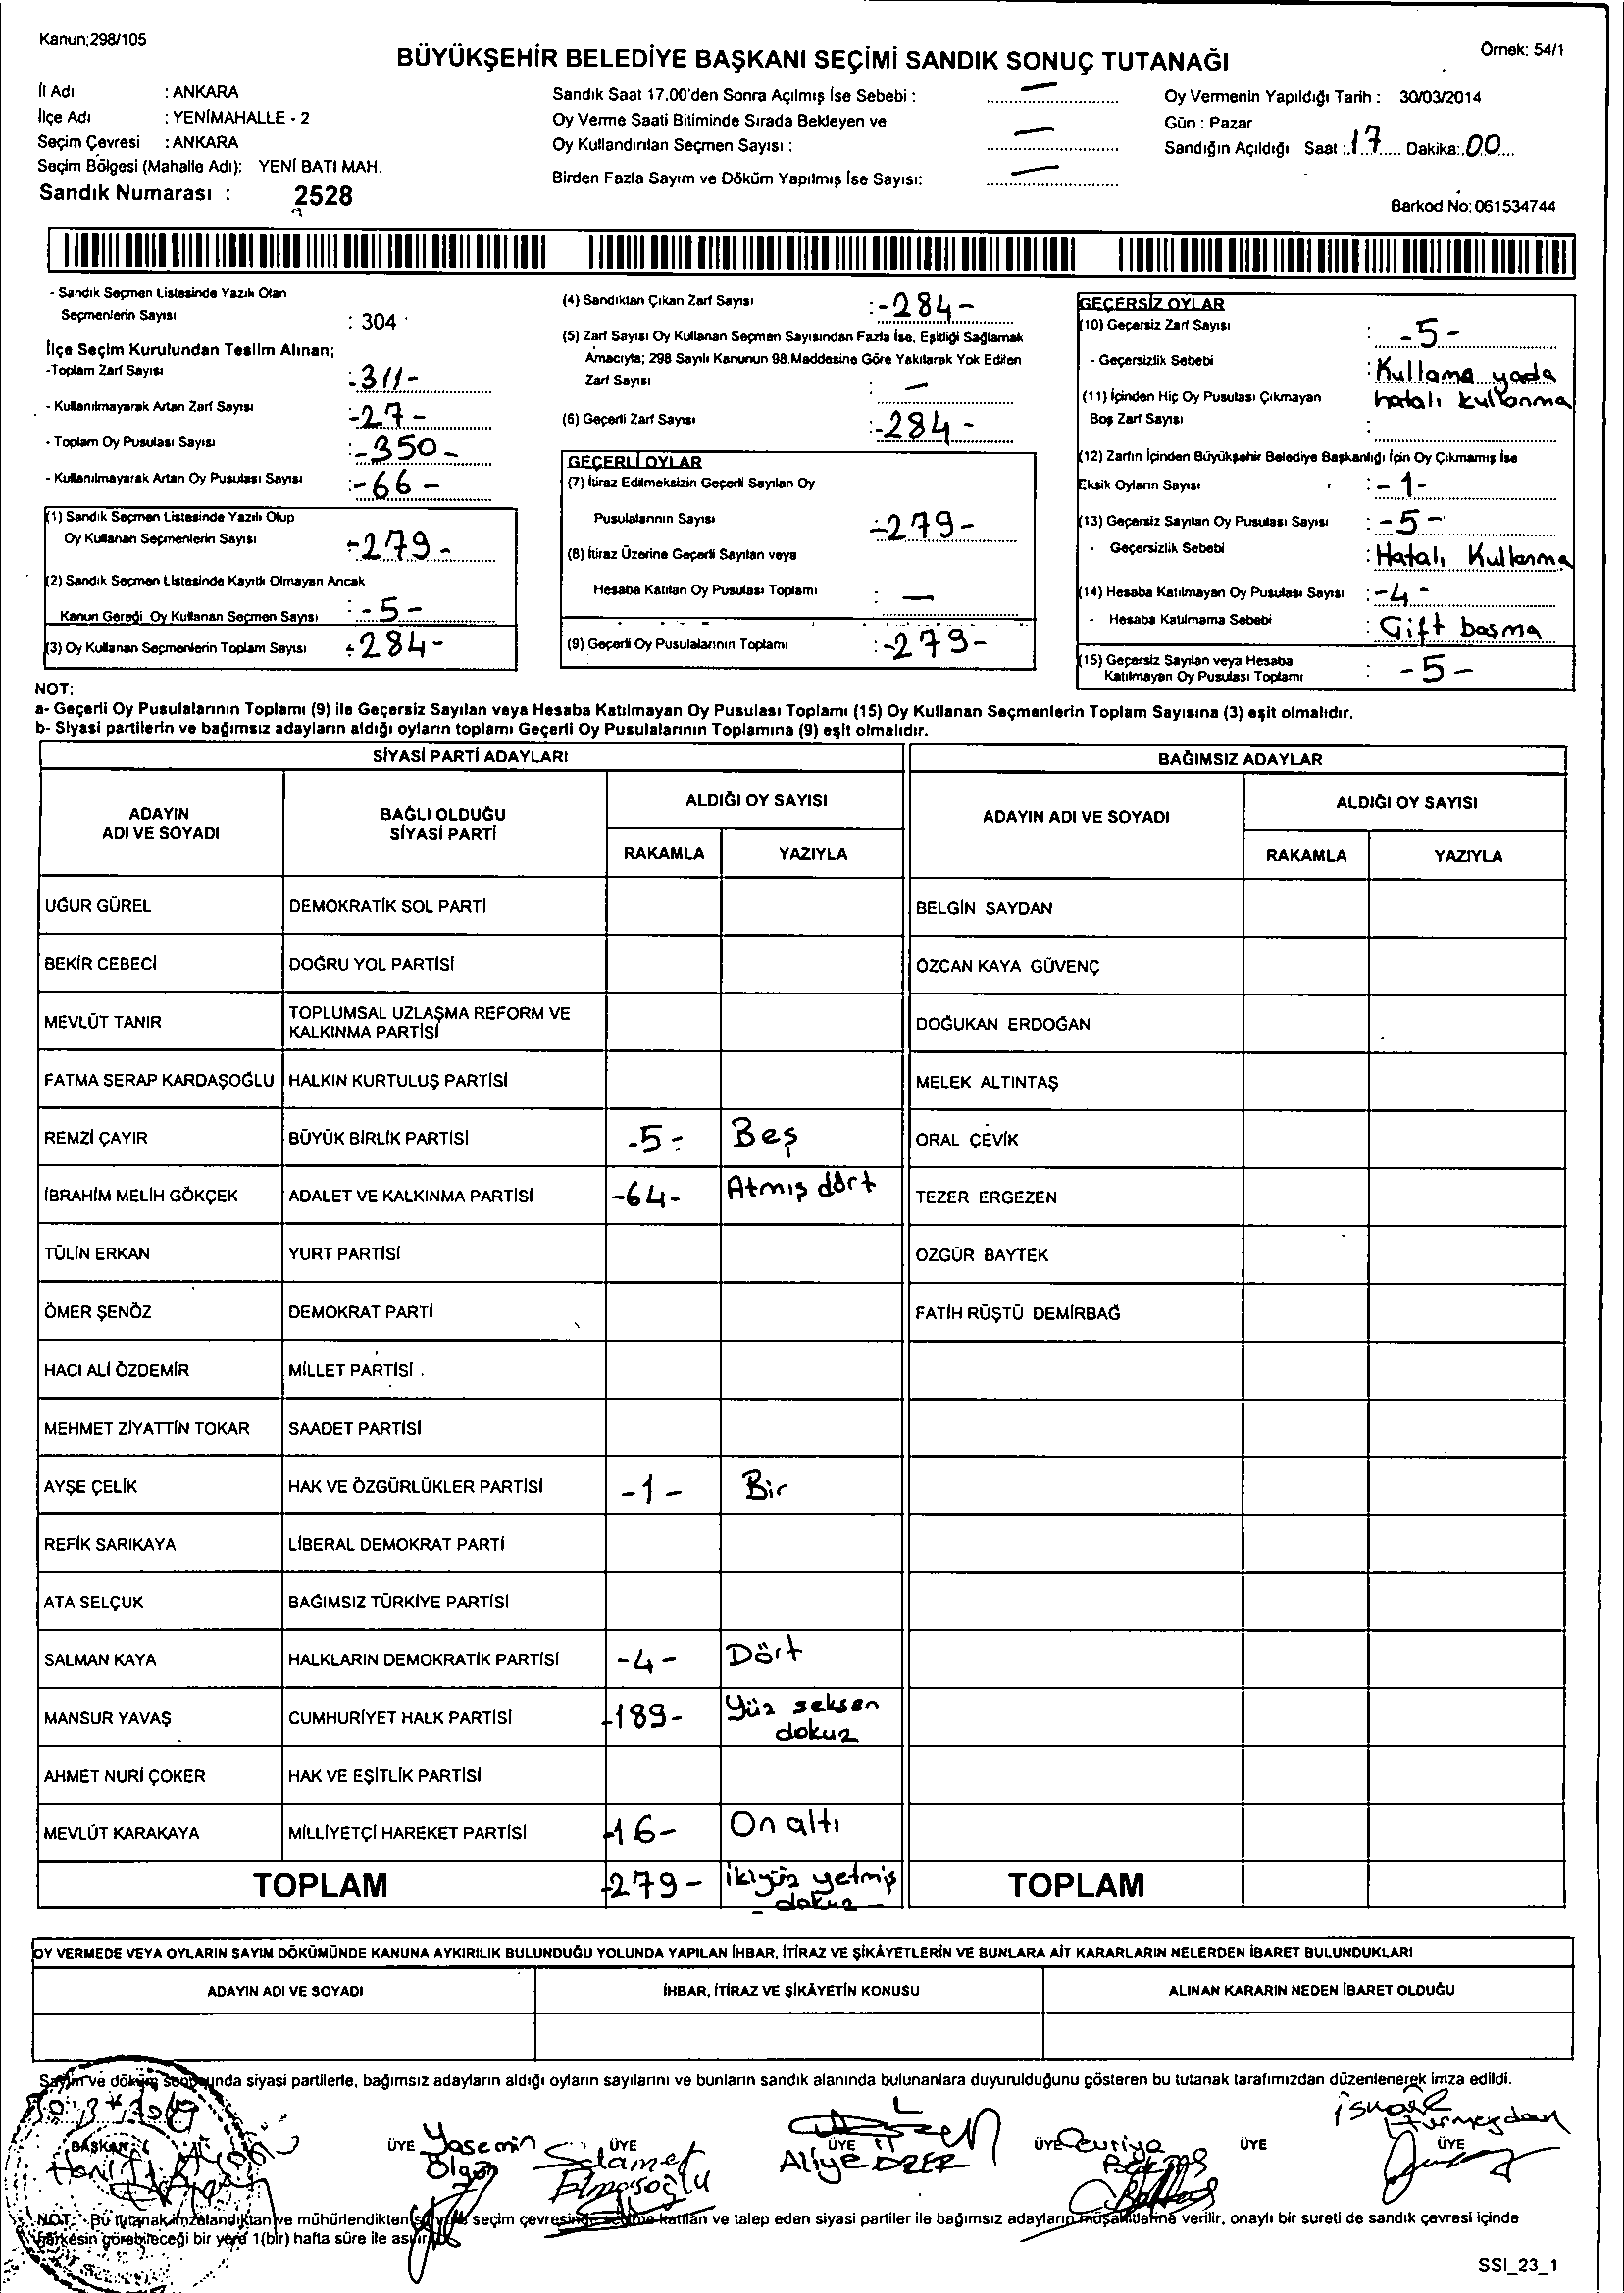 Kanun;298/105
Örnek: 54/1
BÜYÜKŞEHİR BELEDİYE BAŞKANI SEÇİMİ SANDIK SONUÇ TUTANAĞI
İl Adı : ANKARA
İlçe Adı : YENİMAHALLE - 2
Seçim Çevresi : ANKARA
Seçim Bölgesi (Mahalle Adı): YENİ BATI MAH.
Sandık Numarası : 2528
Sandık Saat 17.00'den Sonra Açılmış İse Sebebi : —
Oy Verme Saati Bitiminde Sırada Bekleyen ve
Oy Kullandırılan Seçmen Sayısı : —
Birden Fazla Sayım ve Döküm Yapılmış İse Sayısı: —
Oy Vermenin Yapıldığı Tarih : 30/03/2014
Gün : Pazar
Sandığın Açıldığı Saat : 17 Dakika: 00
Barkod No: 061534744
- Sandık Seçmen Listesinde Yazılı Olan
Seçmenlerin Sayısı : 304
İlçe Seçim Kurulundan Teslim Alınan;
-Toplam Zarf Sayısı : -311-
- Kullanılmayarak Artan Zarf Sayısı : -27-
- Toplam Oy Pusulası Sayısı : -350-
- Kullanılmayarak Artan Oy Pusulası Sayısı : -66-
(1) Sandık Seçmen Listesinde Yazılı Olup
Oy Kullanan Seçmenlerin Sayısı : -279-
(2) Sandık Seçmen Listesinde Kayıtlı Olmayan Ancak
Kanun Gereği Oy Kullanan Seçmen Sayısı : -5-
(3) Oy Kullanan Seçmenlerin Toplam Sayısı : -284-
(4) Sandıktan Çıkan Zarf Sayısı : -284-
(5) Zarf Sayısı Oy Kullanan Seçmen Sayısından Fazla İse, Eşitliği Sağlamak
Amacıyla; 298 Sayılı Kanunun 98.Maddesine Göre Yakılarak Yok Edilen
Zarf Sayısı : —
(6) Geçerli Zarf Sayısı : -284-
GEÇERLİ OYLAR
(7) İtiraz Edilmeksizin Geçerli Sayılan Oy
Pusulalarının Sayısı : -279-
(8) İtiraz Üzerine Geçerli Sayılan veya
Hesaba Katılan Oy Pusulası Toplamı : —
(9) Geçerli Oy Pusulalarının Toplamı : -279-
GEÇERSİZ OYLAR
(10) Geçersiz Zarf Sayısı : -5-
- Geçersizlik Sebebi : Kullama yada
hatalı kullanma
(11) İçinden Hiç Oy Pusulası Çıkmayan
Boş Zarf Sayısı :
(12) Zarfın İçinden Büyükşehir Belediye Başkanlığı İçin Oy Çıkmamış İse
Eksik Oyların Sayısı : -1-
(13) Geçersiz Sayılan Oy Pusulası Sayısı : -5-
- Geçersizlik Sebebi : Hatalı Kullanma
(14) Hesaba Katılmayan Oy Pusulası Sayısı : -4-
- Hesaba Katılmama Sebebi : Çift basma
(15) Geçersiz Sayılan veya Hesaba
Katılmayan Oy Pusulası Toplamı : -5-
NOT:
a- Geçerli Oy Pusulalarının Toplamı (9) ile Geçersiz Sayılan veya Hesaba Katılmayan Oy Pusulası Toplamı (15) Oy Kullanan Seçmenlerin Toplam Sayısına (3) eşit olmalıdır.
b- Siyasi partilerin ve bağımsız adayların aldığı oyların toplamı Geçerli Oy Pusulalarının Toplamına (9) eşit olmalıdır.
SİYASİ PARTİ ADAYLARI BAĞIMSIZ ADAYLAR
ADAYIN
ADI VE SOYADI
BAĞLI OLDUĞU
SİYASİ PARTİ
ALDIĞI OY SAYISI
RAKAMLA YAZIYLA
ADAYIN ADI VE SOYADI
ALDIĞI OY SAYISI
RAKAMLA YAZIYLA
UĞUR GÜREL DEMOKRATİK SOL PARTİ BELGİN SAYDAN
BEKİR CEBECİ DOĞRU YOL PARTİSİ ÖZCAN KAYA GÜVENÇ
MEVLÜT TANIR TOPLUMSAL UZLAŞMA REFORM VE
KALKINMA PARTİSİ DOĞUKAN ERDOĞAN
FATMA SERAP KARDAŞOĞLU HALKIN KURTULUŞ PARTİSİ MELEK ALTINTAŞ
REMZİ ÇAYIR BÜYÜK BİRLİK PARTİSİ -5- Beş ORAL ÇEVİK
İBRAHİM MELİH GÖKÇEK ADALET VE KALKINMA PARTİSİ -64- Atmış dört TEZER ERGEZEN
TÜLİN ERKAN YURT PARTİSİ ÖZGÜR BAYTEK
ÖMER ŞENÖZ DEMOKRAT PARTİ FATİH RÜŞTÜ DEMİRBAĞ
HACI ALİ ÖZDEMİR MİLLET PARTİSİ
MEHMET ZİYATTİN TOKAR SAADET PARTİSİ
AYŞE ÇELİK HAK VE ÖZGÜRLÜKLER PARTİSİ -1- Bir
REFİK SARIKAYA LİBERAL DEMOKRAT PARTİ
ATA SELÇUK BAĞIMSIZ TÜRKİYE PARTİSİ
SALMAN KAYA HALKLARIN DEMOKRATİK PARTİSİ -4- Dört
MANSUR YAVAŞ CUMHURİYET HALK PARTİSİ -189- Yüz seksen
dokuz
AHMET NURİ ÇOKER HAK VE EŞİTLİK PARTİSİ
MEVLÜT KARAKAYA MİLLİYETÇİ HAREKET PARTİSİ -16- On altı
TOPLAM -279- İkiyüz yetmiş
- dokuz -
TOPLAM
OY VERMEDE VEYA OYLARIN SAYIM DÖKÜMÜNDE KANUNA AYKIRILIK BULUNDUĞU YOLUNDA YAPILAN İHBAR, İTİRAZ VE ŞİKÂYETLERİN VE BUNLARA AİT KARARLARIN NELERDEN İBARET BULUNDUKLARI
ADAYIN ADI VE SOYADI İHBAR, İTİRAZ VE ŞİKÂYETİN KONUSU ALINAN KARARIN NEDEN İBARET OLDUĞU
Sayım ve döküm sonucunda siyasi partilerle, bağımsız adayların aldığı oyların sayılarını ve bunların sandık alanında bulunanlara duyurulduğunu gösteren bu tutanak tarafımızdan düzenlenerek imza edildi.
BAŞKAN ÜYE Yasemin ÜYE Selamet ÜYE Aliye ÖZER ÜYE ÜYE ÜYE
NOT: - Bu tutanak imzalandıktan ve mühürlendikten seçim çevresinde seçime katılan ve talep eden siyasi partiler ile bağımsız adayların müşahitlerine verilir, onaylı bir sureti de sandık çevresi içinde
herkesin görebileceği bir yere 1(bir) hafta süre ile asılır.
SSI_23_1